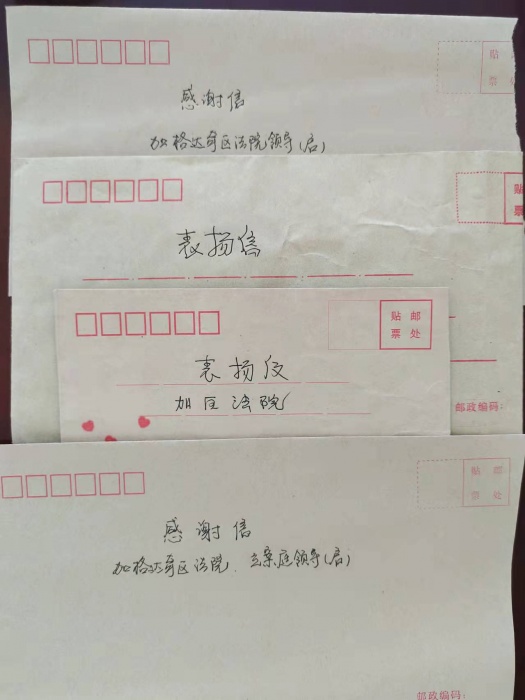 贴
票
感谢信
加格达奇区法院领导(启)
贴
票
表扬信
贴 邮
票 处
表扬信
加区法院
邮政编码：
贴 邮
票 处
感谢信
加格达奇区法院、立案庭领导(启)
邮政编码：